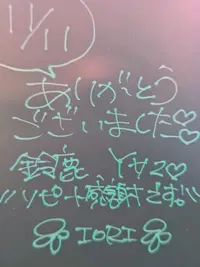 11/11
ありがとう
ございました♡♡
鈴鹿 Yサ20♡
リピート感謝です!!
IORI